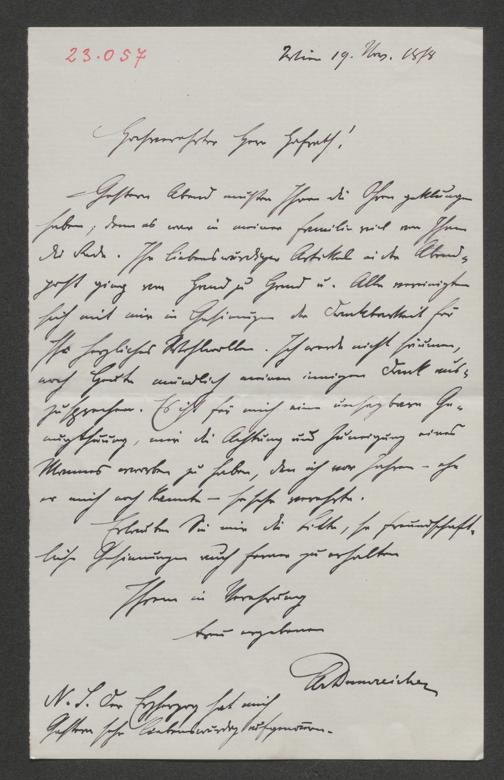 23.057
Wien 19. Nov. 1878
Hochverehrter Herr Hofrath!
Gestern Abend mußten Ihnen die Ohren geklungen
haben, denn es war in meiner Familie viel von Ihnen
die Rede. Ihr liebenswürdiger Artikel in der Abend-
post ging von Hand zu Hand u. Alle vereinigten
sich mit mir in Gesinnungen der Dankbarkeit für
Ihr herzliches Wohlwollen. Ich werde nicht säumen,
noch heute mündlich meinen innigen Dank aus-
zusprechen. Es ist für mich eine unsagbare Ge-
nugthuung, mir die Achtung und Zuneigung eines
Mannes erworben zu haben, den ich vor Jahren – ehe
er mich noch kannte – so sehr verehrte.
Erlauben Sie mir die Bitte, so freundschaft-
liche Gesinnungen auch ferner zu erhalten
Ihrem in Verehrung
treu ergebenen
Dumreicher
N. S. Der Erzherzog hat mich
gestern sehr liebenswürdig aufgenommen.